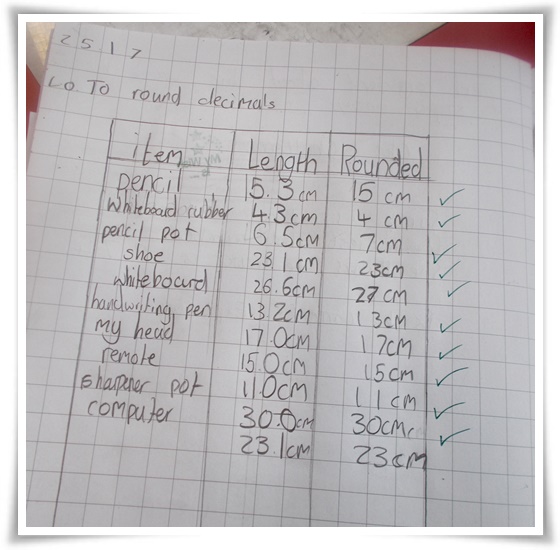 2 5 1 7
LO To round decimals
item Length Rounded
pencil 15.3cm 15cm
whiteboard rubber 4.3cm 4cm
pencil pot 6.5cm 7cm
shoe 23.1cm 23cm
whiteboard 26.6cm 27cm
handwriting pen 13.2cm 13cm
my head 17.0cm 17cm
remote 15.0cm 15cm
sharpener pot 11.0cm 11cm
computer 30.0cm 30cm
23.1cm 23cm